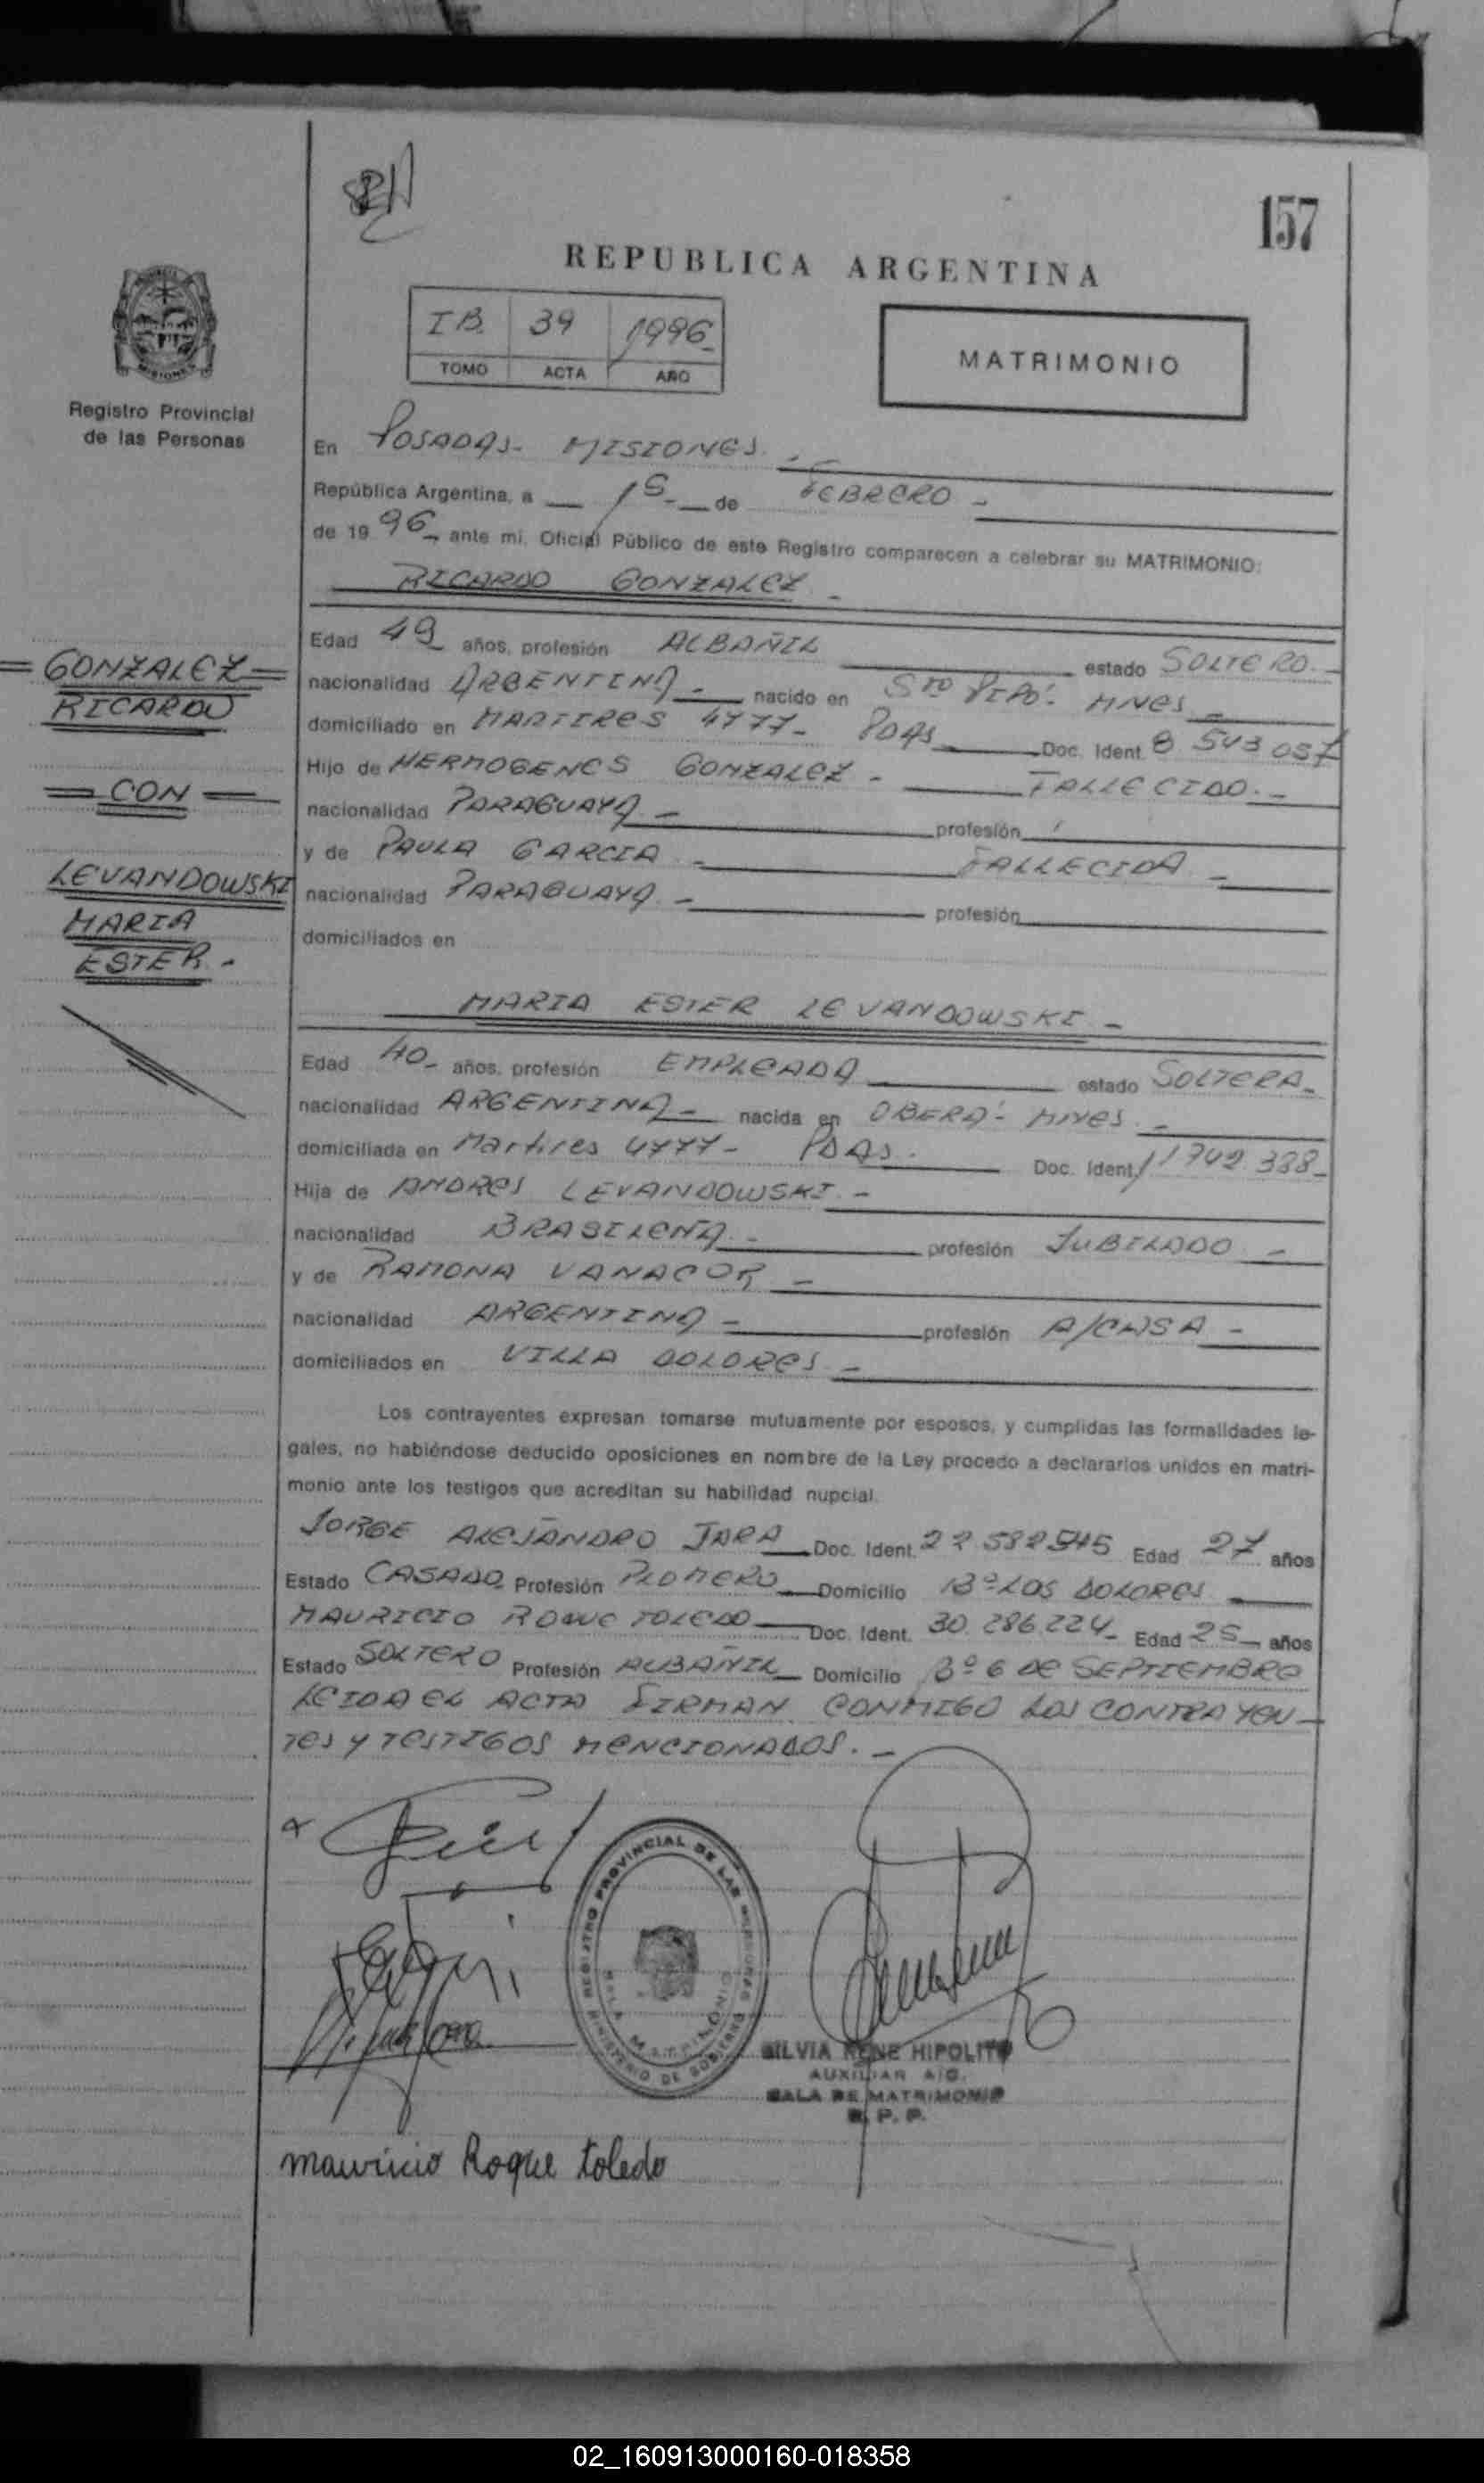 157
REPUBLICA ARGENTINA
IB. 39 1996
TOMO ACTA AÑO
MATRIMONIO
MISIONES
Registro Provincial
de las Personas
En POSADAS - MISIONES. -
República Argentina, a 15 de FEBRERO -
de 1996 ante mi, Oficial Público de este Registro comparecen a celebrar su MATRIMONIO:
RICARDO GONZALEZ -
Edad 49 años, profesión ALBAÑIL estado SOLTERO. -
nacionalidad ARGENTINA - nacido en STO PIPÓ: MNES -
domiciliado en MARTIRES 4777 - PDAS Doc. Ident. 8.543.057
Hijo de HERMOGENES GONZALEZ - FALLECIDO. -
nacionalidad PARAGUAYA - profesión
y de PAULA GARCIA - FALLECIDA -
nacionalidad PARAGUAYA - profesión
domiciliados en
= GONZALEZ =
RICARDO
= CON =
LEVANDOWSKI
MARIA
ESTER. -
MARIA ESTER LEVANDOWSKI -
Edad 40 - años, profesión EMPLEADA estado SOLTERA -
nacionalidad ARGENTINA - nacida en OBERÁ - MNES. -
domiciliada en Martires 4777 - PDAS. Doc. Ident. 11 742.338 -
Hija de ANDRES LEVANDOWSKI -
nacionalidad BRASILEÑA - profesión JUBILADO -
y de RAMONA VANACOR -
nacionalidad ARGENTINA - profesión A/CASA -
domiciliados en VILLA DOLORES -
Los contrayentes expresan tomarse mutuamente por esposos, y cumplidas las formalidades le-
gales, no habiéndose deducido oposiciones en nombre de la Ley procedo a declararlos unidos en matri-
monio ante los testigos que acreditan su habilidad nupcial.
JORGE ALEJANDRO JARA Doc. Ident. 22 582 545 Edad 27 años
Estado CASADO Profesión PLOMERO Domicilio Bº LOS DOLORES
MAURICIO ROQUE TOLEDO Doc. Ident. 30.286.224 - Edad 25 años
Estado SOLTERO Profesión ALBAÑIL Domicilio Bº 6 DE SEPTIEMBRE
LEIDA EL ACTA FIRMAN CONMIGO LOS CONTRAYEN-
TES Y TESTIGOS MENCIONADOS. -
REGISTRO PROVINCIAL DE LAS PERSONAS
SALA MATRIMONIO
MINISTERIO DE GOBIERNO
SILVIA RENE HIPOLITO
AUXILIAR A/C.
SALA DE MATRIMONIO
R. P. P.
mauricio Roque toledo
02_160913000160-018358